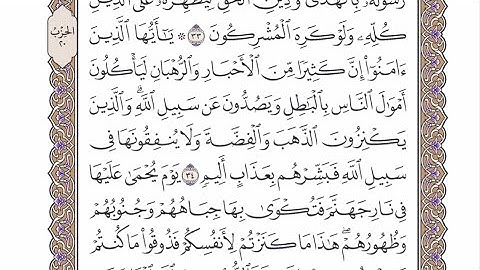 رَسُولَهُۥ بِٱلۡهُدَىٰ وَدِينِ ٱلۡحَقِّ لِيُظۡهِرَهُۥ عَلَى ٱلدِّينِ
كُلِّهِۦ وَلَوۡ كَرِهَ ٱلۡمُشۡرِكُونَ ٣٣ ۞ يَٰٓأَيُّهَا ٱلَّذِينَ
ءَامَنُوٓاْ إِنَّ كَثِيرٗا مِّنَ ٱلۡأَحۡبَارِ وَٱلرُّهۡبَانِ لَيَأۡكُلُونَ
أَمۡوَٰلَ ٱلنَّاسِ بِٱلۡبَٰطِلِ وَيَصُدُّونَ عَن سَبِيلِ ٱللَّهِۗ وَٱلَّذِينَ
يَكۡنِزُونَ ٱلذَّهَبَ وَٱلۡفِضَّةَ وَلَا يُنفِقُونَهَا فِي
سَبِيلِ ٱللَّهِ فَبَشِّرۡهُم بِعَذَابٍ أَلِيمٖ ٣٤ يَوۡمَ يُحۡمَىٰ عَلَيۡهَا
فِي نَارِ جَهَنَّمَ فَتُكۡوَىٰ بِهَا جِبَاهُهُمۡ وَجُنُوبُهُمۡ
وَظُهُورُهُمۡۖ هَٰذَا مَا كَنَزۡتُمۡ لِأَنفُسِكُمۡ فَذُوقُواْ مَا كُنتُمۡ
الحِزۡبُ
٢٠